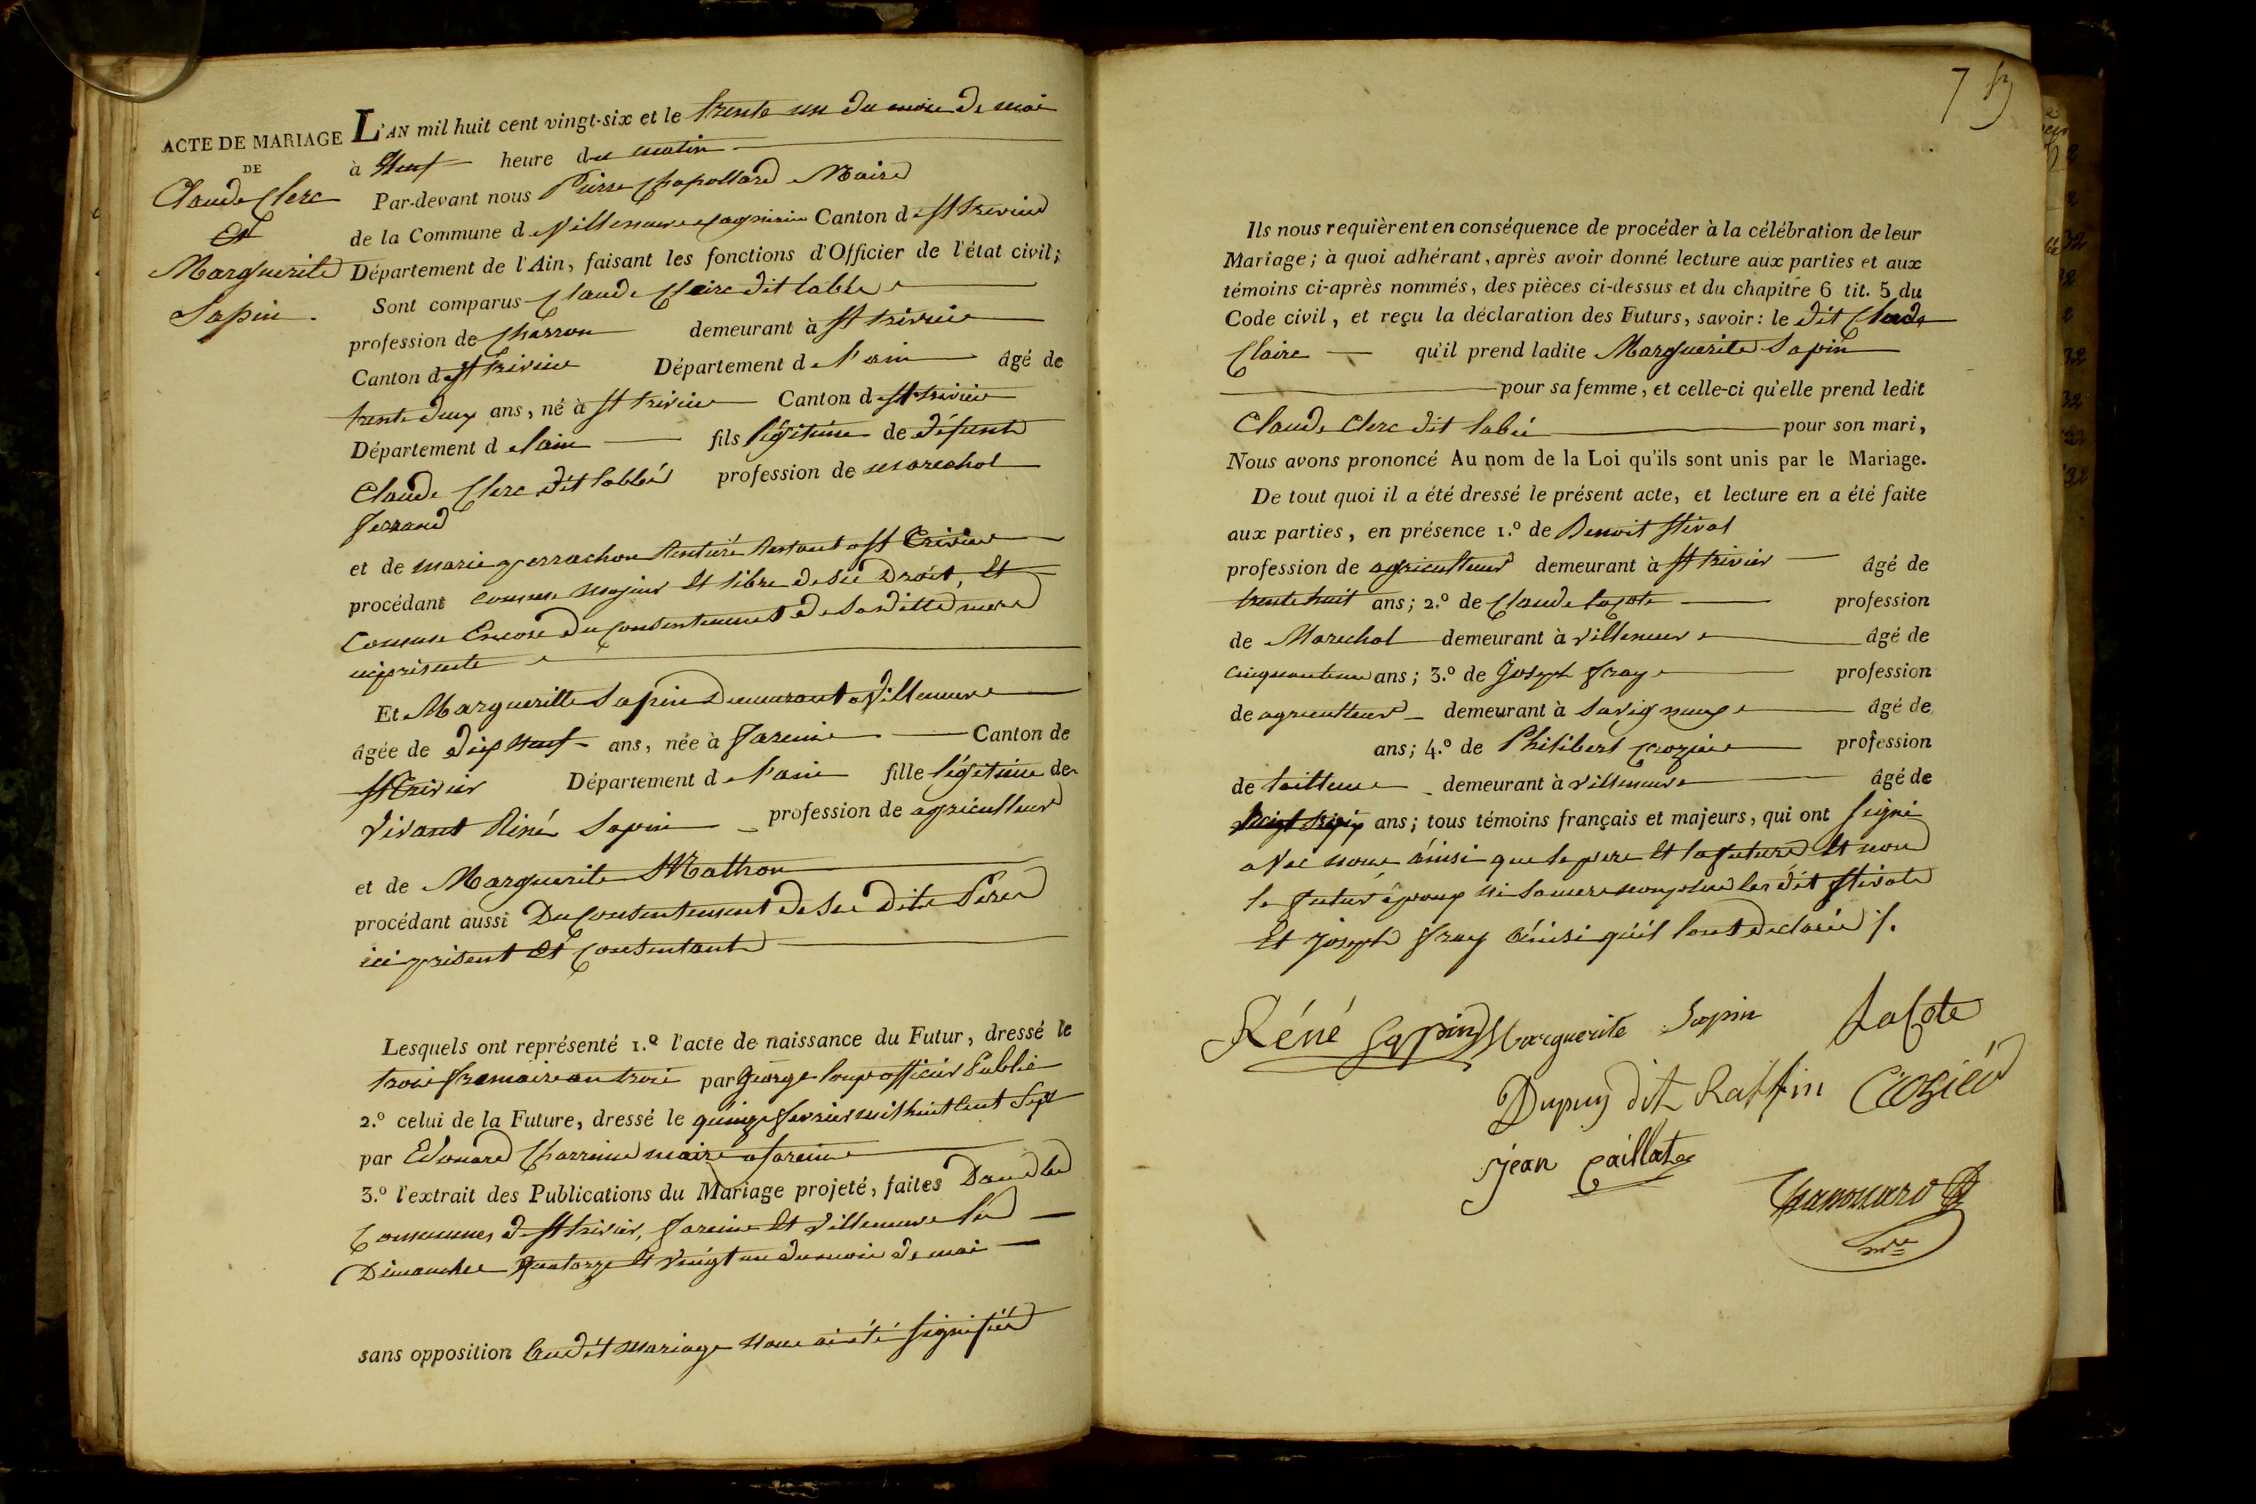 ACTE DE MARIAGE
DE
Claude Clerc
Et
Marguerite
Sapin.
L'AN mil huit cent vingt-six et le trente un du mois de mai
à Neuf heure du matin
Par-devant nous Pierre Chapollard Maire
de la Commune de Villeneuve Canton de St trivier
Département de l'Ain, faisant les fonctions d'Officier de l'état civil;
Sont comparus Claude Claire dit labbe
profession de Charron demeurant à St trivier
Canton de St trivier Département de l'ain âgé de
trente deux ans, né à St trivier Canton de St trivier
Département de lain fils légitime de défunt
Claude Clerc dit labbé profession de marechal
ferrand
et de marie perrachon Rentière Restant a St Trivier
procédant comme majeur Et libre de ses Droit, Et
Comme Encore du Consentement de Saditte mere
ici presente
Et Margueritte Sapin Demeurant a Villeneuve
âgée de dix Neuf ans, née à fareins Canton de
St Trivier Département de l'ain fille légitime de
Vivant Réné Sapin profession de agriculteur
et de Marguerite Mathon
procédant aussi Du Consentement de Ses Dits Père
ici present Et Consentant
Lesquels ont représenté 1.º l'acte de naissance du Futur, dressé le
trois frimaire an trois par George loup officier Public
2.º celui de la Future, dressé le quinze fevrier mil huit Cent Sept
par Edouard maire a fareins
3.º l'extrait des Publications du Mariage projeté, faites Dans les
Communes de St trivier, fareins Et Villeneuve les
Dimanches Quatorze Et Vingt un du mois de mai
sans opposition Audit mariage Nous ai été Signifiée
7
Ils nous requièrent en conséquence de procéder à la célébration de leur
Mariage; à quoi adhérant, après avoir donné lecture aux parties et aux
témoins ci-après nommés, des pièces ci-dessus et du chapitre 6 tit. 5 du
Code civil, et reçu la déclaration des Futurs, savoir: le dit Claude
Claire qu'il prend ladite Marguerite Sapin
pour sa femme, et celle-ci qu'elle prend ledit
Claude Clerc dit labé pour son mari,
Nous avons prononcé Au nom de la Loi qu'ils sont unis par le Mariage.
De tout quoi il a été dressé le présent acte, et lecture en a été faite
aux parties, en présence 1.º de Benoit Stival
profession de agriculteur demeurant à St trivier âgé de
trente huit ans; 2.º de Claude lacote profession
de Marechal demeurant à villeneuve âgé de
cinquante un ans; 3.º de Joseph fray profession
de agriculteur demeurant à Savigneux âgé de
ans; 4.º de Philibert Crozier profession
de tailleur demeurant à villeneuve âgé de
Vingt ans; tous témoins français et majeurs, qui ont Signé
avec nous ainsi que le pere Et la future Et non
le futur époux ni Sa mere non plus les dit Stival
Et joseph fray ainsi quil lont declaré /.
Réné Sapin Marguerite Sapin LaCote
Dupuy dit Raffin Crozier
jean Caillat
mre
32